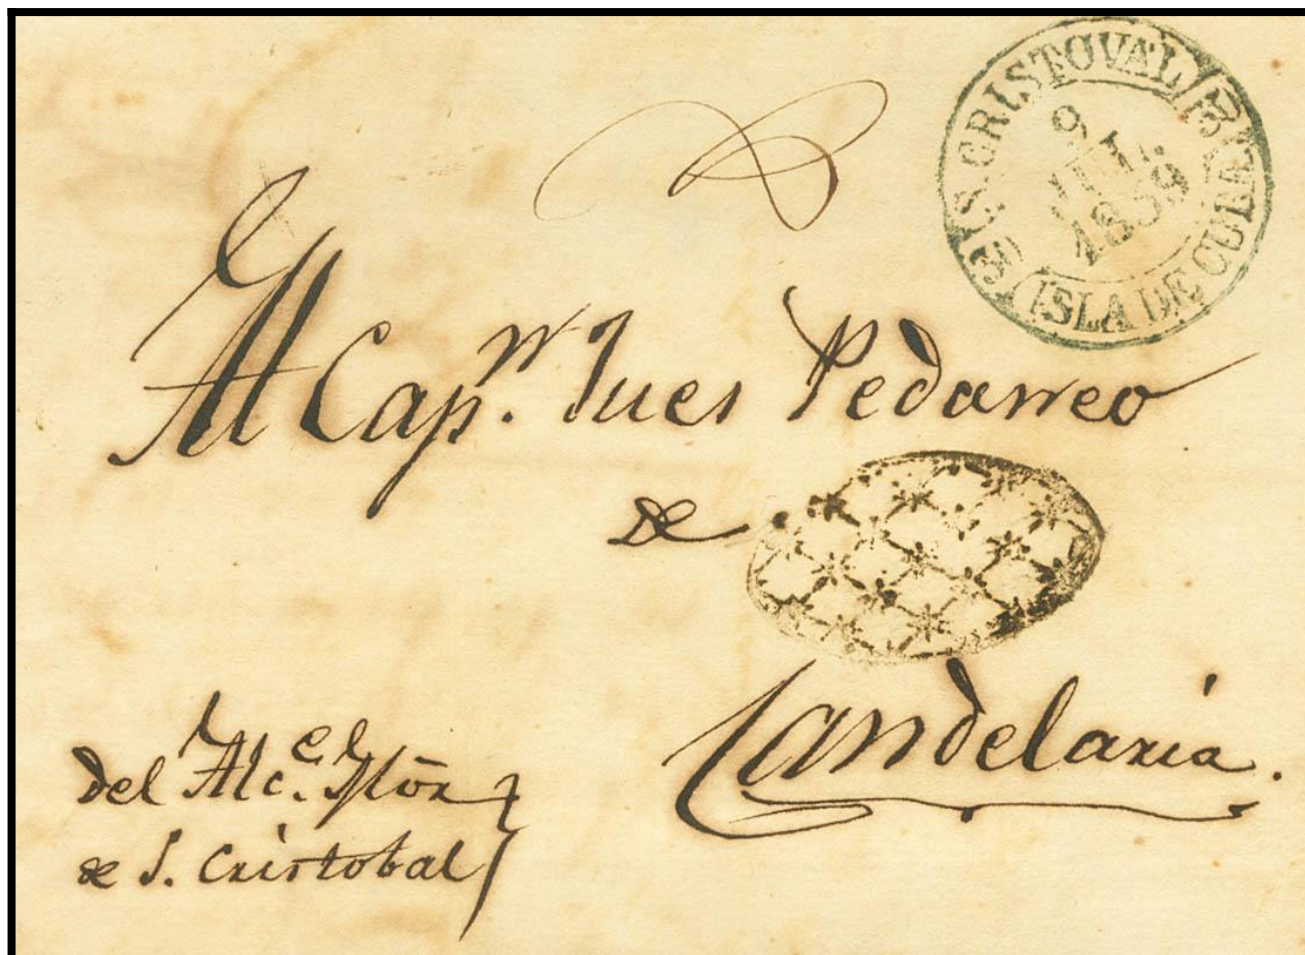 S. CRISTOVAL
9
JUL.
1859
ISLA DE CUBA
Al Capn. Jues Pedaneo
de
Candelaria.
del Alce.
de S. Cristobal